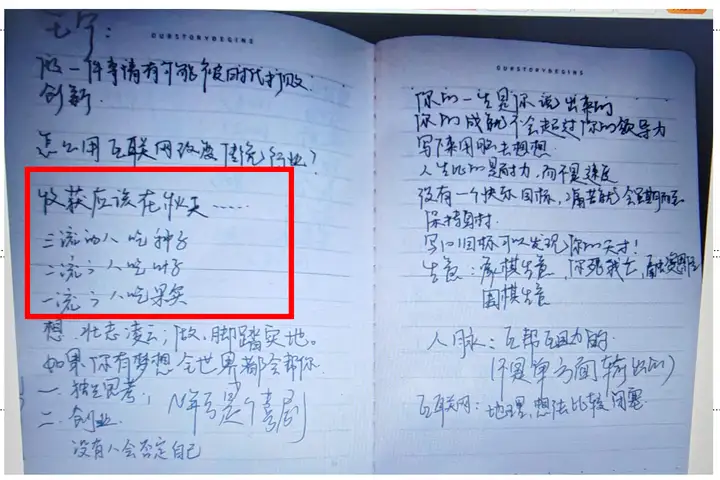 王宁：
OURSTORYBEGINS
做一件事情有可能被时代打败
创新
怎么用互联网改变传统行业？
收获应该在秋天……
三流的人吃种子
二流的人吃叶子
一流的人吃果实
想，壮志凌云；做，脚踏实地。
如果你有梦想全世界都会帮你
一．独立思考；
二．创业
没有人会否定自己
OURSTORYBEGINS
你的一生是你说出来的
你的成就不会超过你的领导力
写下来用脑去想想
人生比的是耐力，而不是速度
没有一个快乐目标，痛苦就会如期而至
保持负村
写101目标可以发现你的天才！
生意：象棋生意，你死我亡，
围棋生意
人脉：互帮互助力的
（不是单方面输出的）
互联网：地理，想法比较闭塞